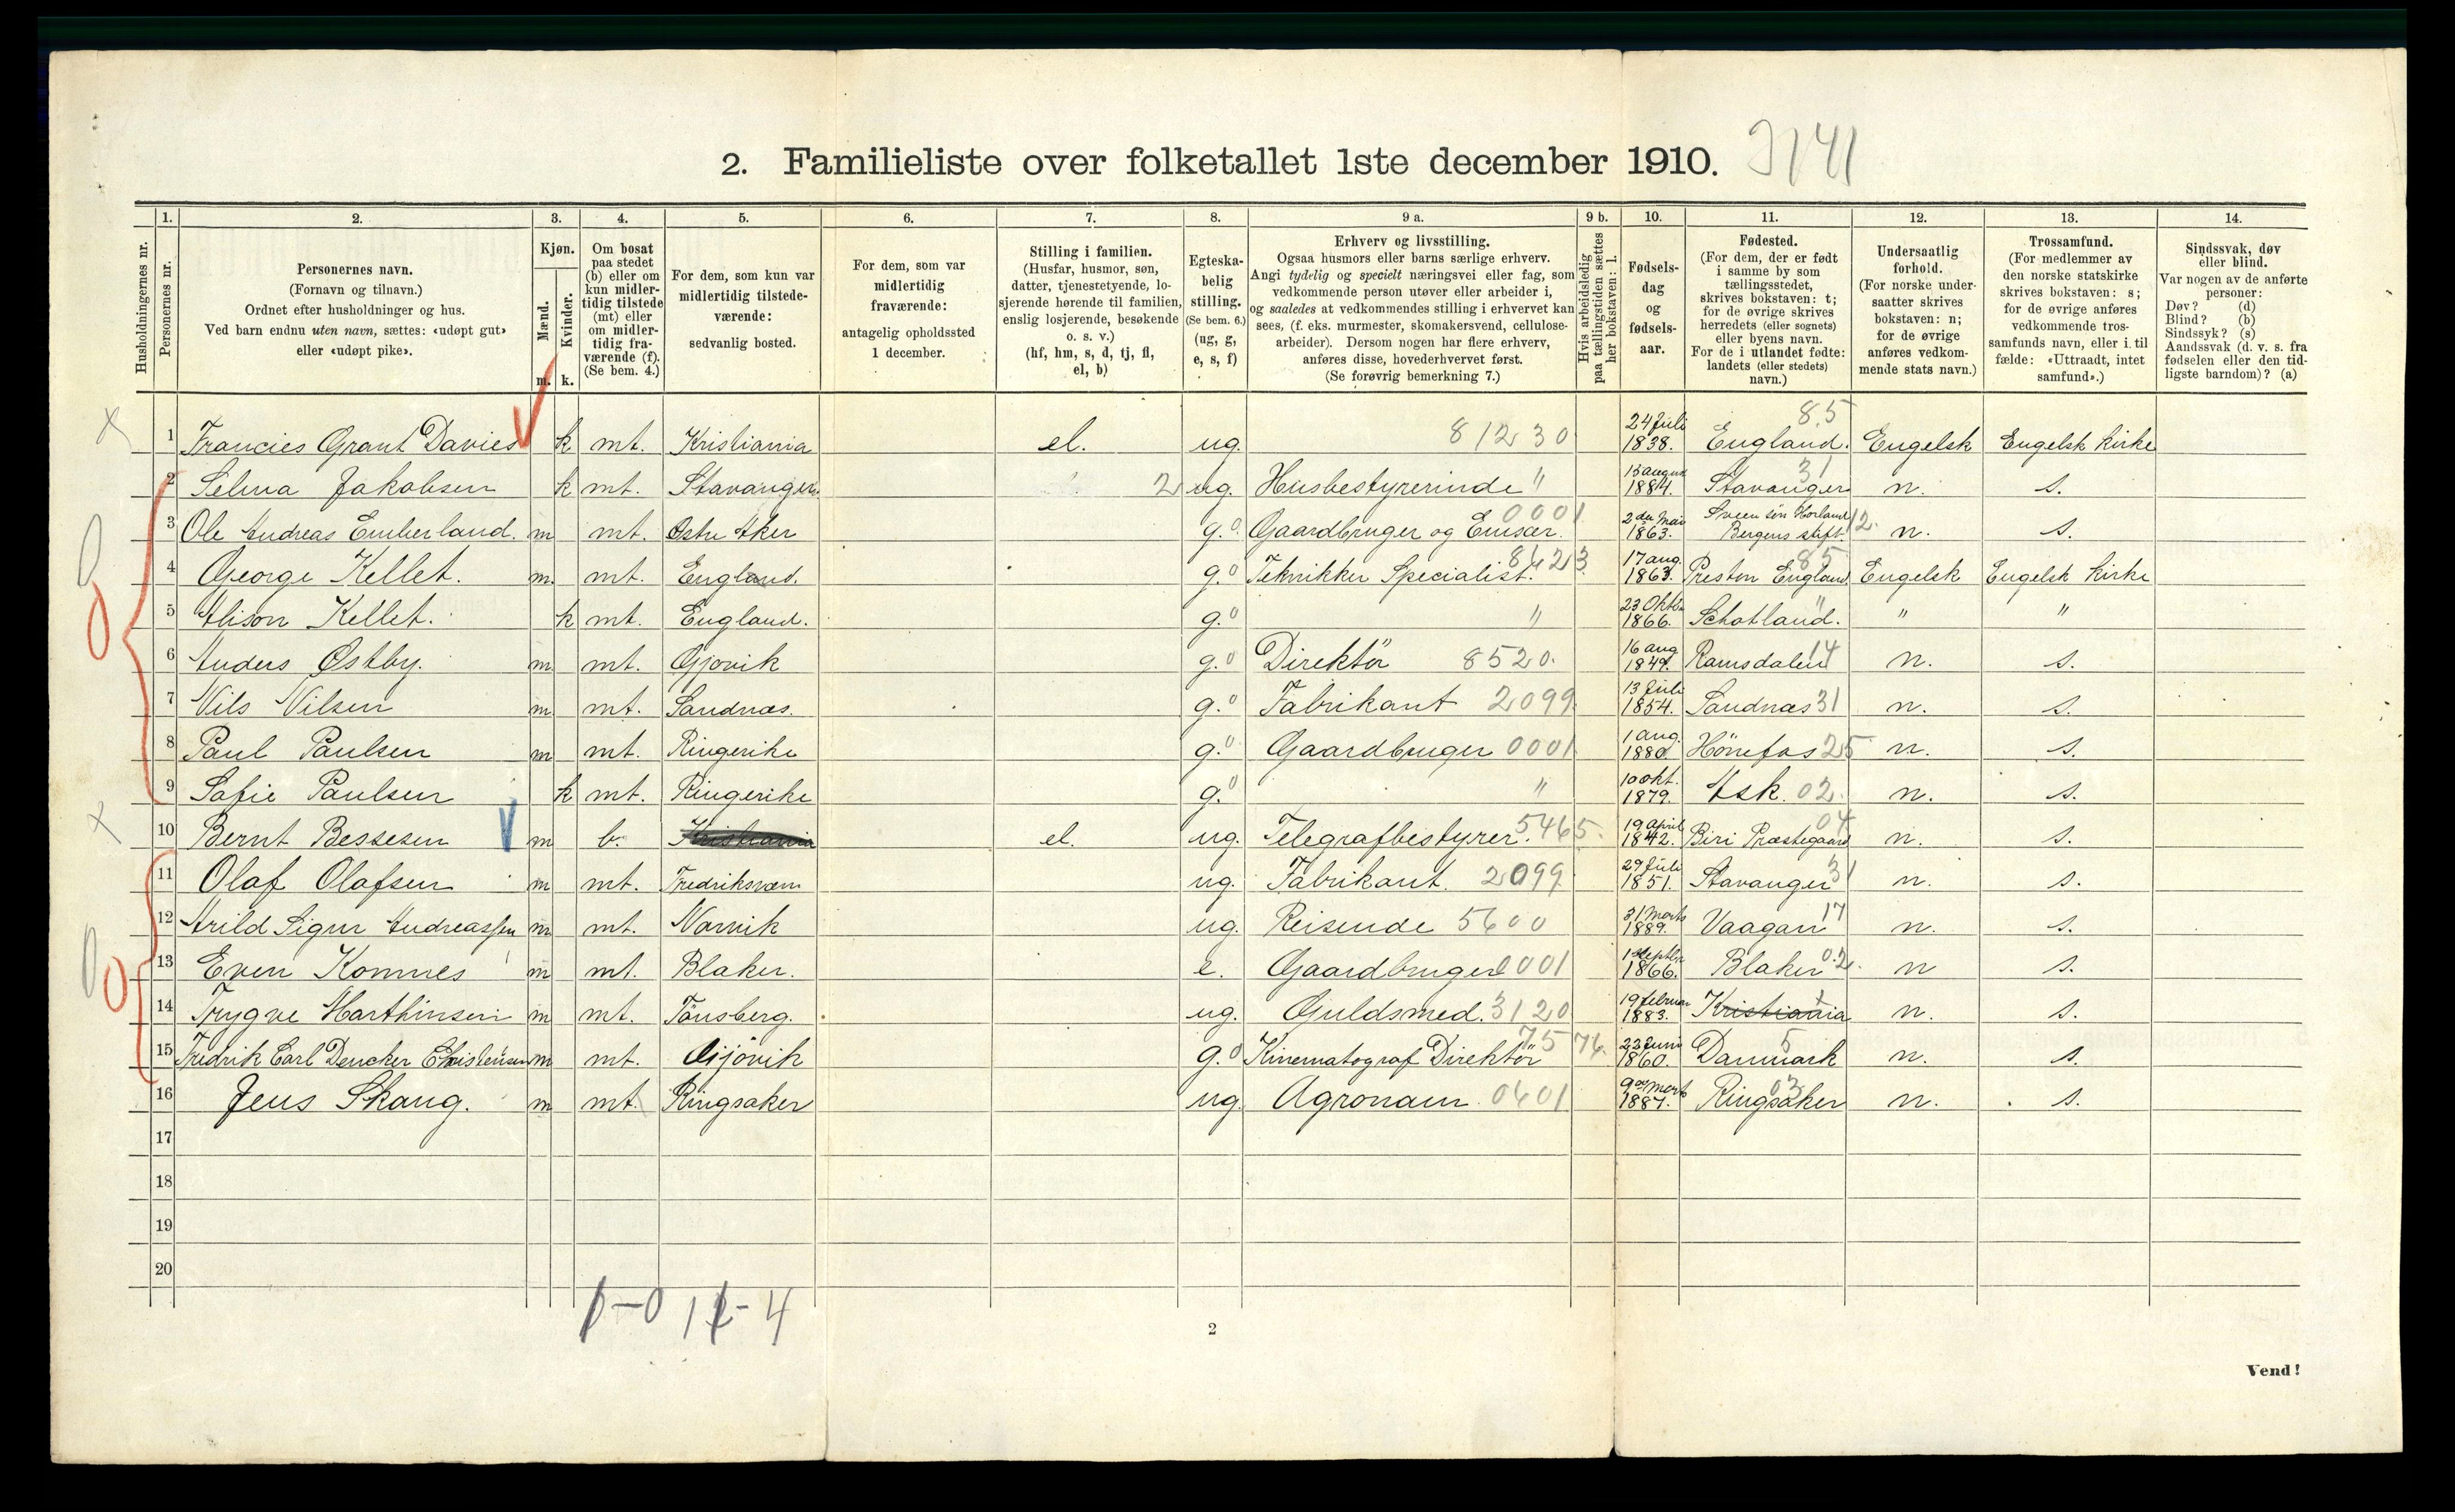 2. Familieliste over folketallet 1ste december 1910. 3141
Husholdningernes nr.
1. Personernes nr.
2. Personernes navn. (Fornavn og tilnavn.) Ordnet efter husholdninger og hus. Ved barn endnu uten navn, sættes: «udøpt gut» eller «udøpt pike».
3. Kjøn. Mænd. m. Kvinder. k.
4. Om bosat paa stedet (b) eller om kun midlertidig tilstede (mt) eller om midlertidig fraværende (f). (Se bem. 4.)
5. For dem, som kun var midlertidig tilstedeværende: sedvanlig bosted.
6. For dem, som var midlertidig fraværende: antagelig opholdssted 1 december.
7. Stilling i familien. (Husfar, husmor, søn, datter, tjenestetyende, losjerende hørende til familien, enslig losjerende, besøkende o. s. v.) (hf, hm, s, d, tj, fl, el, b)
8. Egteskabelig stilling. (Se bem. 6.) (ug, g, e, s, f)
9 a. Erhverv og livsstilling. Ogsaa husmors eller barns særlige erhverv. Angi tydelig og specielt næringsvei eller fag, som vedkommende person utøver eller arbeider i, og saaledes at vedkommendes stilling i erhvervet kan sees, (f. eks. murmester, skomakersvend, cellulosearbeider). Dersom nogen har flere erhverv, anføres disse, hovederhvervet først. (Se forøvrig bemerkning 7.)
9 b. Hvis arbeidsledig paa tællingstiden sættes her bokstaven: l.
10. Fødselsdag og fødselsaar.
11. Fødested. (For dem, der er født i samme by som tællingsstedet, skrives bokstaven: t; for de øvrige skrives herredets (eller sognets) eller byens navn. For de i utlandet fødte: landets (eller stedets) navn.)
12. Undersaatlig forhold. (For norske undersaatter skrives bokstaven: n; for de øvrige anføres vedkommende stats navn.)
13. Trossamfund. (For medlemmer av den norske statskirke skrives bokstaven: s; for de øvrige anføres vedkommende trossamfunds navn, eller i tilfælde: «Uttraadt, intet samfund».)
14. Sindssvak, døv eller blind. Var nogen av de anførte personer: Døv? (d) Blind? (b) Sindssyk? (s) Aandssvak (d. v. s. fra fødselen eller den tidligste barndom)? (a)
1 Francies Grant Davies k mt. Kristiania el. ug. 81230 24 Juli 1838. England. 85 Engelsk Engelsk kirke
2 Selma Jakobsen k mt. Stavanger. 2 ug. Husbestyrerinde " 13 august 1884. Stavanger 31 n. s.
3 Ole Andreas Emberland. m mt. Østre Aker g. 0 Gaardbruger og Emisær. 0001 2den Mai 1863. Sveen sön Horland Bergens stift. 12. n. s.
4 George Kellet. m. mt. England. g. 0 Teknikker Specialist. 8423 17 aug. 1863. Preston England 85 Engelsk Engelsk kirke
5 Alison Kellet. k mt. England. g. 0 " 23 Oktbr 1866. Schotland. " " "
6 Anders Østby. m mt. Gjøvik g. 0 Direktör 8520. 16 aug 1849. Ramsdalen 14 n. s.
7 Nils Nilsen m mt. Sandnæs. g. 0 Fabrikant 2099 13 Juli 1854. Sandnæs 31 n. s.
8 Paul Paulsen m mt. Ringerike g. 0 Gaardbruger 0001 1 aug. 1880 Hönefos 25 n. s.
9 Safie Paulsen k mt. Ringerike g. 0 " 10 okt. 1879. Ask. 02. n. s.
10 Bernt Bessesen m b. Kristiania el. ug. Telegrafbestyrer. 5465. 19 April 1842. Biri Præstegaard 04 n. s.
11 Olaf Olafsen m mt. Fredriksværn ug. Fabrikant. 2099 29 Juli 1851. Stavanger 31 n. s.
12 Arild Sigur Andreassen m mt. Narvik ug. Reisende 5600 31 Marts 1889. Vaagan 17 n. s.
13 Even Komnes m mt. Blaker. e. Gaardbruger 0001 1 Septbr 1866. Blaker 02. n s.
14 Trygve Marthinsen m mt. Tönsberg. ug. Guldsmed. 3120 19 februar 1883. Kristiania t n. s.
15 Fredrik Carl Dencker Christensen m mt. Gjövik g. 0 Kinematograf Direktör 7574. 22 Juni 1860. Danmark 5 n. s.
16 Jens Skaug. m mt. Ringsaker ug. Agronom 0401 9de Marts 1887. Ringsaker 03 n. s.
17
18
19
20
2
Vend!